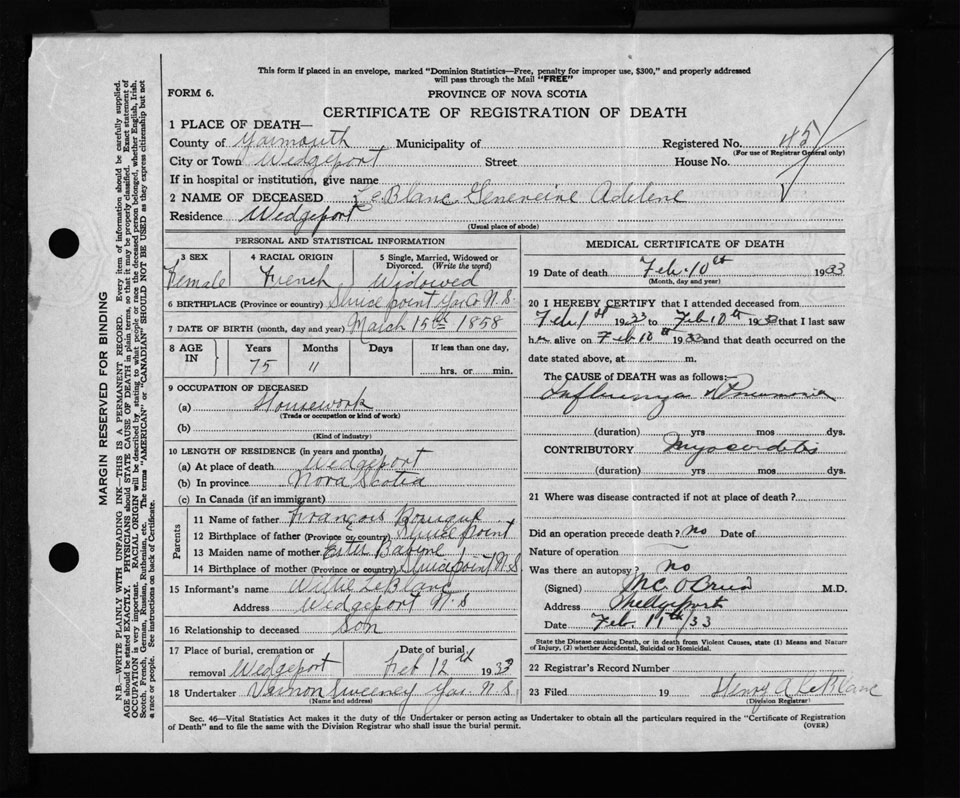 This form if placed in an envelope, marked "Dominion Statistics—Free, penalty for improper use, $300," and properly addressed
will pass through the Mail "FREE"
FORM 6.
PROVINCE OF NOVA SCOTIA
CERTIFICATE OF REGISTRATION OF DEATH
1 PLACE OF DEATH—
County of Yarmouth Municipality of Registered No. 45
(For use of Registrar General only)
City or Town Wedgeport Street House No.
If in hospital or institution, give name
2 NAME OF DECEASED LeBlanc Adelene
Residence Wedgeport
(Usual place of abode)
PERSONAL AND STATISTICAL INFORMATION
3 SEX 4 RACIAL ORIGIN 5 Single, Married, Widowed or
Divorced. (Write the word)
Female French Widowed
6 BIRTHPLACE (Province or country) point Yar Co N.S.
7 DATE OF BIRTH (month, day and year) March 15th 1858
8 AGE IN Years Months Days If less than one day,
75 11 hrs. or min.
9 OCCUPATION OF DECEASED
(a) Housework
(Trade or occupation or kind of work)
(b)
(Kind of industry)
10 LENGTH OF RESIDENCE (in years and months)
(a) At place of death Wedgeport
(b) In province Nova Scotia
(c) In Canada (if an immigrant)
Parents
11 Name of father François
12 Birthplace of father (Province or country) point
13 Maiden name of mother
14 Birthplace of mother (Province or country) point N.S
15 Informant's name Willie LeBlanc
Address Wedgeport N.S
16 Relationship to deceased Son
17 Place of burial, cremation or Date of burial
removal Wedgeport Feb 12th 1933
18 Undertaker Vernon Sweeney Yar. N.S.
(Name and address)
MEDICAL CERTIFICATE OF DEATH
19 Date of death Feb. 10th 1933
(Month, day and year)
20 I HEREBY CERTIFY that I attended deceased from
Feb 1st 1933 to Feb 10th 1933 that I last saw
her alive on Feb 10th 1933 and that death occurred on the
date stated above, at m.
The CAUSE of DEATH was as follows:
Influenza & Pneumonia
(duration) yrs mos dys.
CONTRIBUTORY Myocarditis
(duration) yrs mos dys.
21 Where was disease contracted if not at place of death?
Did an operation precede death? no Date of
Nature of operation
Was there an autopsy? no
(Signed) M.C. O'Brien M.D.
Address Wedgeport
Date Feb. 11th/33
State the Disease causing Death, or in death from Violent Causes, state (1) Means and Nature
of Injury, (2) whether Accidental, Suicidal or Homicidal.
22 Registrar's Record Number
23 Filed 19 Henry A LeBlanc
(Division Registrar)
Sec. 46—Vital Statistics Act makes it the duty of the Undertaker or person acting as Undertaker to obtain all the particulars required in the "Certificate of Registration
of Death" and to file the same with the Division Registrar who shall issue the burial permit.
(OVER)
MARGIN RESERVED FOR BINDING
N.B.—WRITE PLAINLY WITH UNFADING INK—THIS IS A PERMANENT RECORD. Every item of information should be carefully supplied.
AGE should be stated EXACTLY. PHYSICIANS should STATE CAUSE OF DEATH in plain terms, so that it may be properly classified. Exact statement of
OCCUPATION is very important. RACIAL ORIGIN will be described by stating to what people or race the deceased person belonged, whether English, Irish,
Scotch, French, German, Russian, Ruthenian, etc. The terms "AMERICAN" or "CANADIAN" SHOULD NOT BE USED as they express citizenship but not
a race or people. See instructions on back of Certificate.